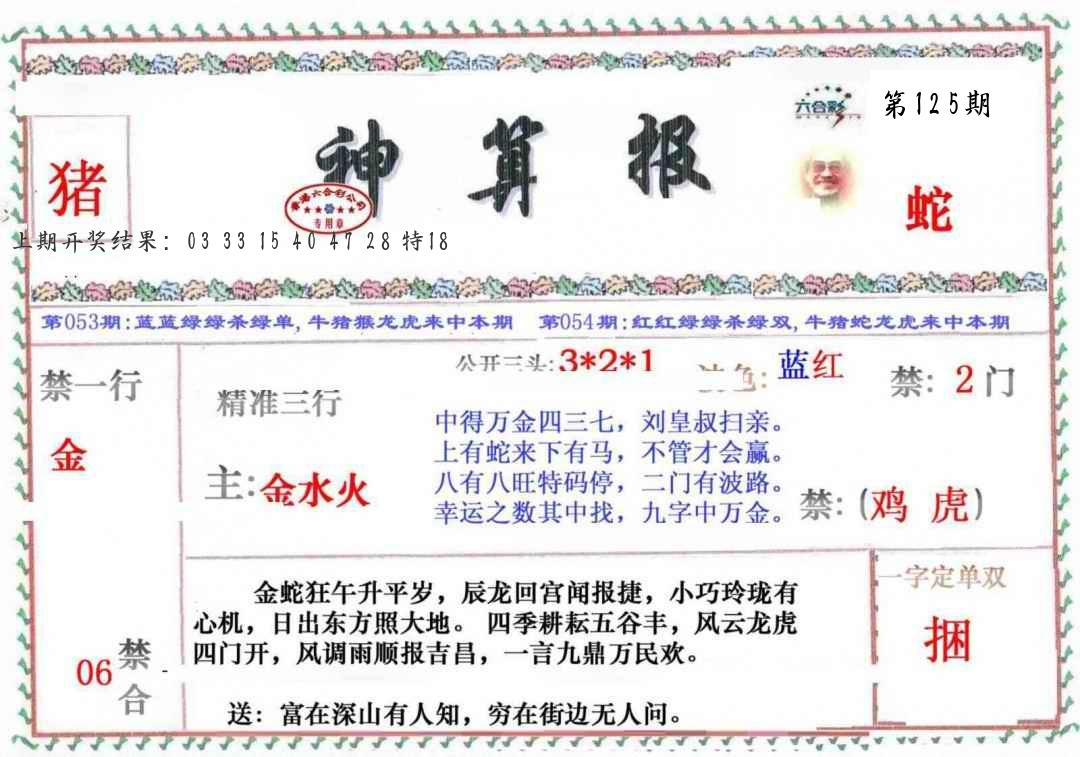 六合彩
第125期
神算报
猪
香港六合彩公司
专用章
蛇
上期开奖结果：03 33 15 40 47 28 特18
第053期:蓝蓝绿绿杀绿单,牛猪猴龙虎来中本期 第054期:红红绿绿杀绿双,牛猪蛇龙虎来中本期
禁一行
金
公开三头:3*2*1
色:蓝红
禁: 2门
精准三行
主:金水火
中得万金四三七，刘皇叔扫亲。
上有蛇来下有马，不管才会赢。
八有八旺特码停，二门有波路。
幸运之数其中找，九字中万金。
禁:(鸡 虎)
金蛇狂午升平岁，辰龙回宫闻报捷，小巧玲珑有
心机，日出东方照大地。 四季耕耘五谷丰，风云龙虎
四门开，风调雨顺报吉昌，一言九鼎万民欢。
送：富在深山有人知，穷在街边无人问。
一字定单双
捆
06
禁合